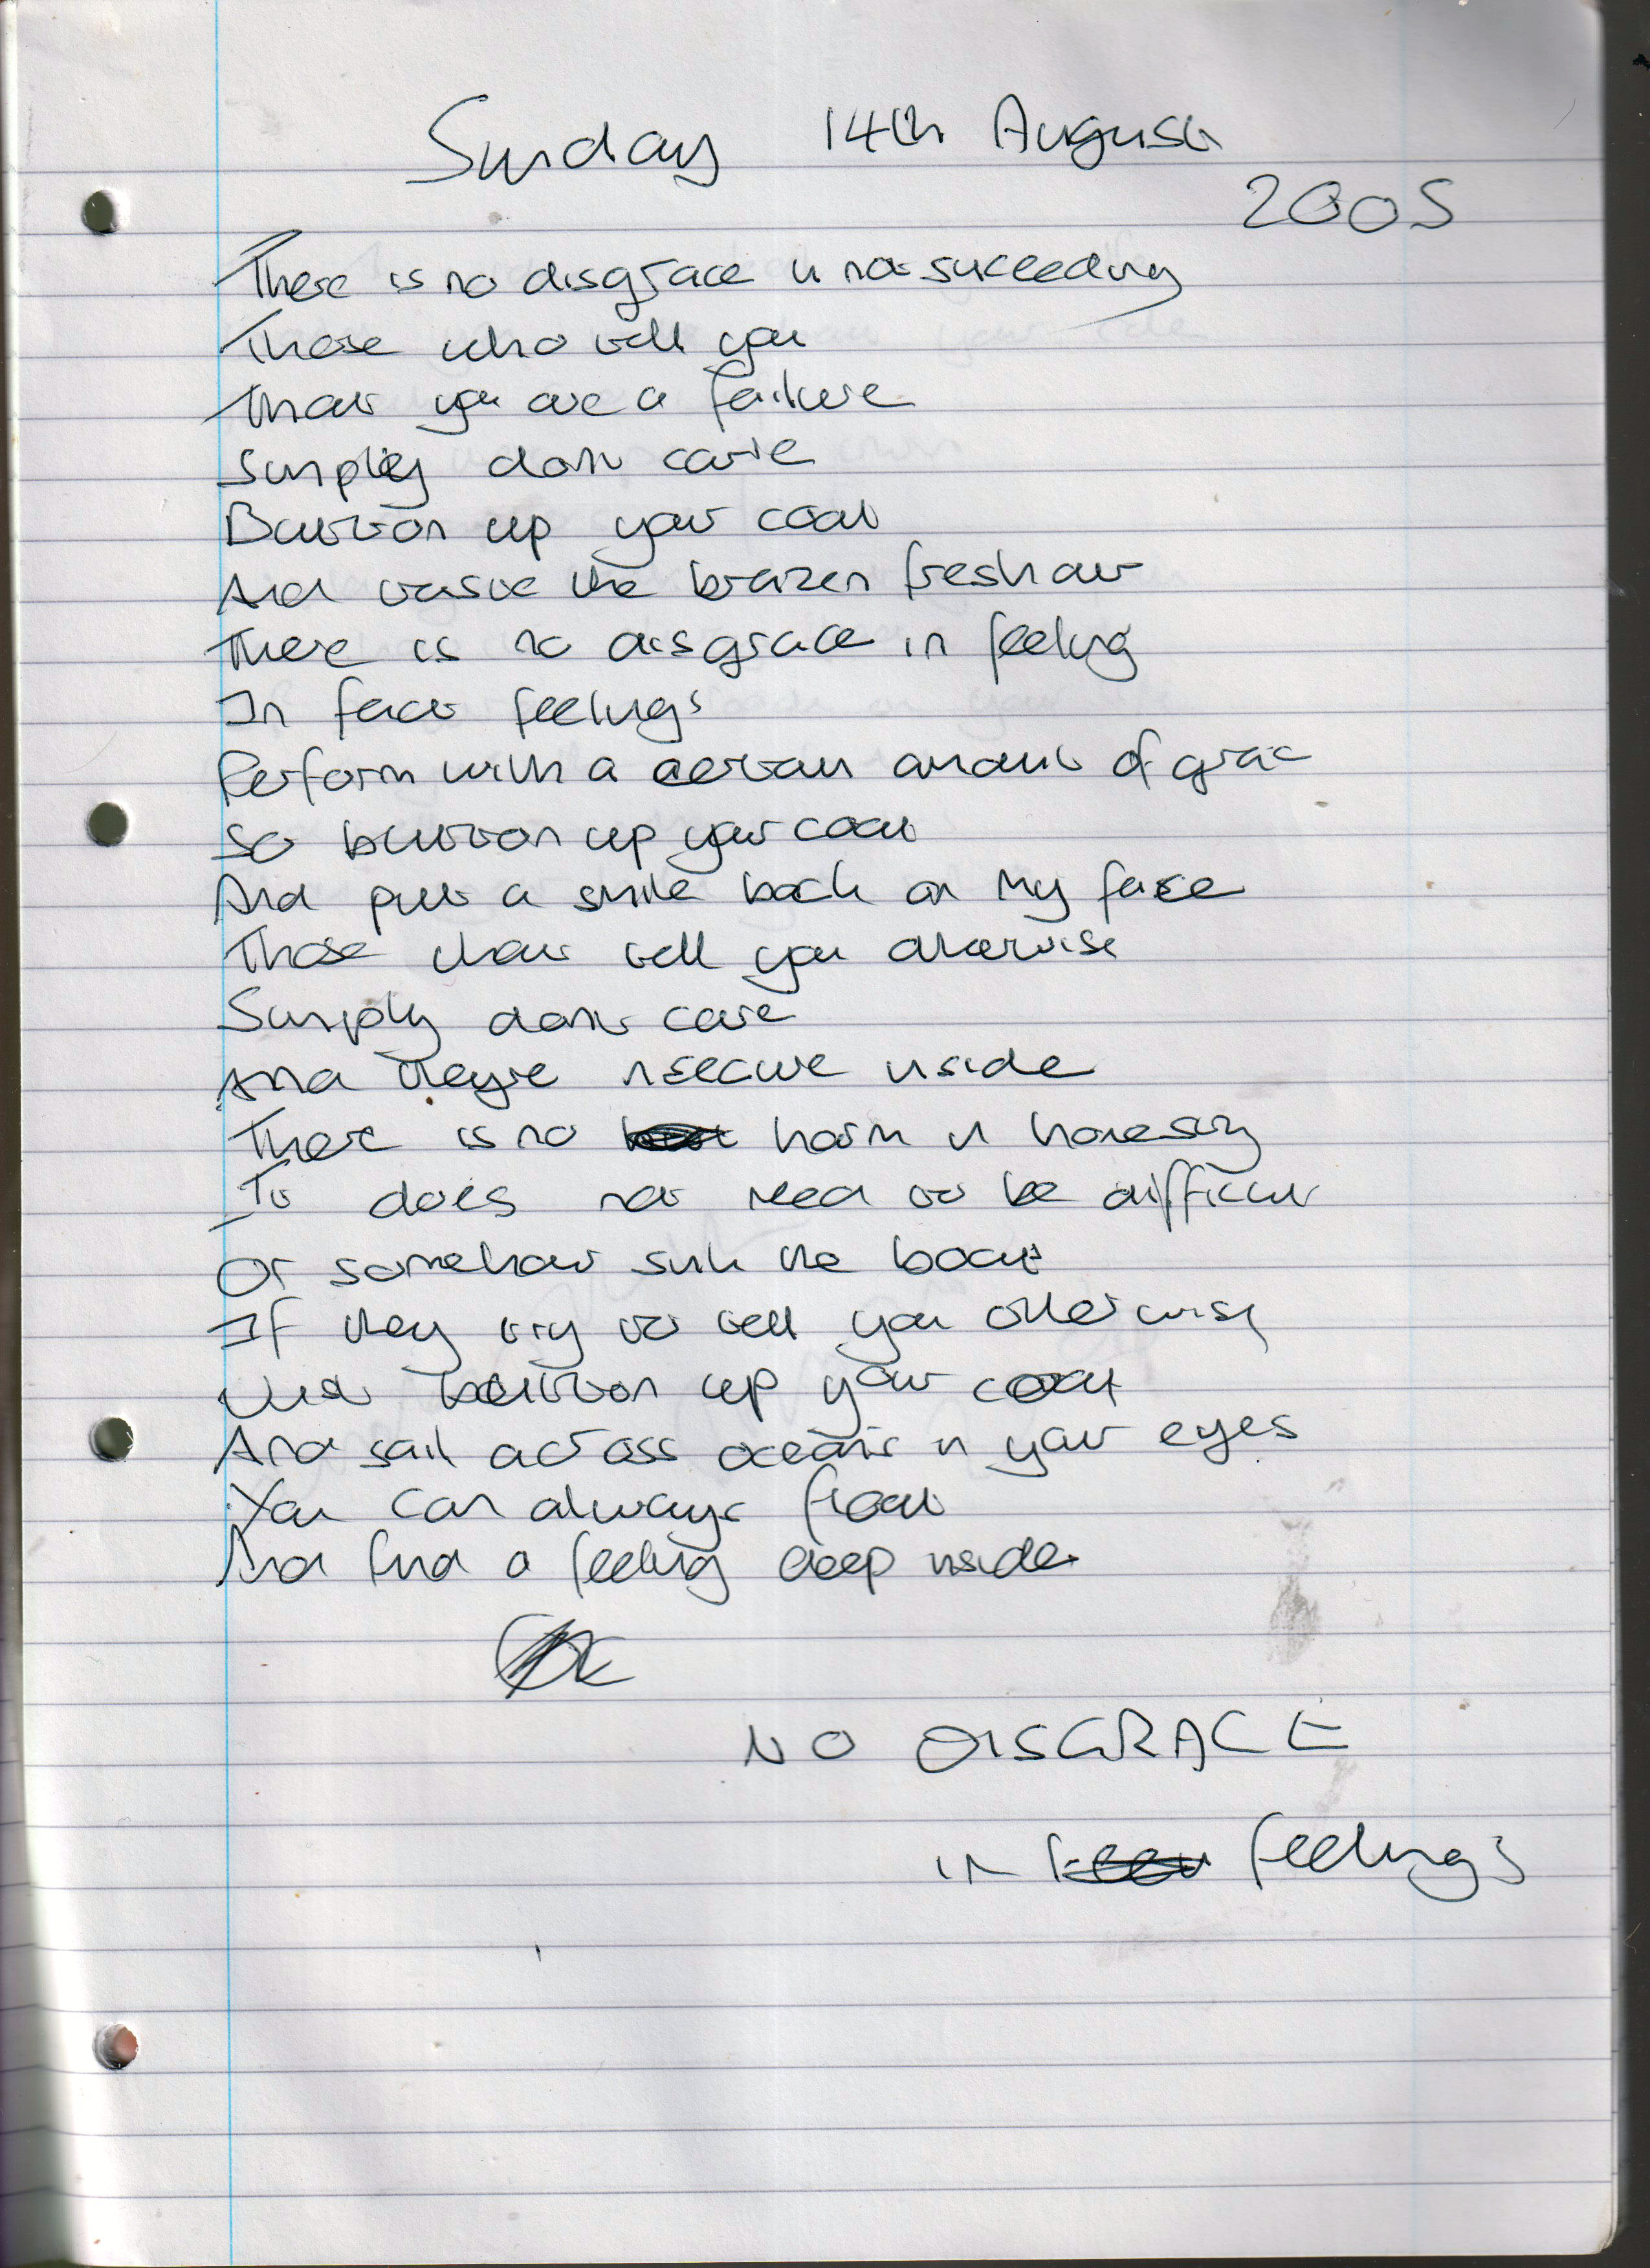 Sunday 14th August
2005
There is no disgrace in not succeeding
Those who tell you
That you are a failure
Simply dont care
Button up your coat
And taste the brazen fresh air
There is no disgrace in feeling
In fact feelings
Perform with a certain amount of grace
So button up your coat
And put a smile back on my face
Those that tell you otherwise
Simply dont care
And theyre insecure inside
There is no harm in honesty
It does not need to be difficult
Or somehow sink the boat
If they try to tell you otherwise
Just button up your coat
And sail across oceans in your eyes
You can always float
And find a feeling deep inside
NO DISGRACE
IN feelings